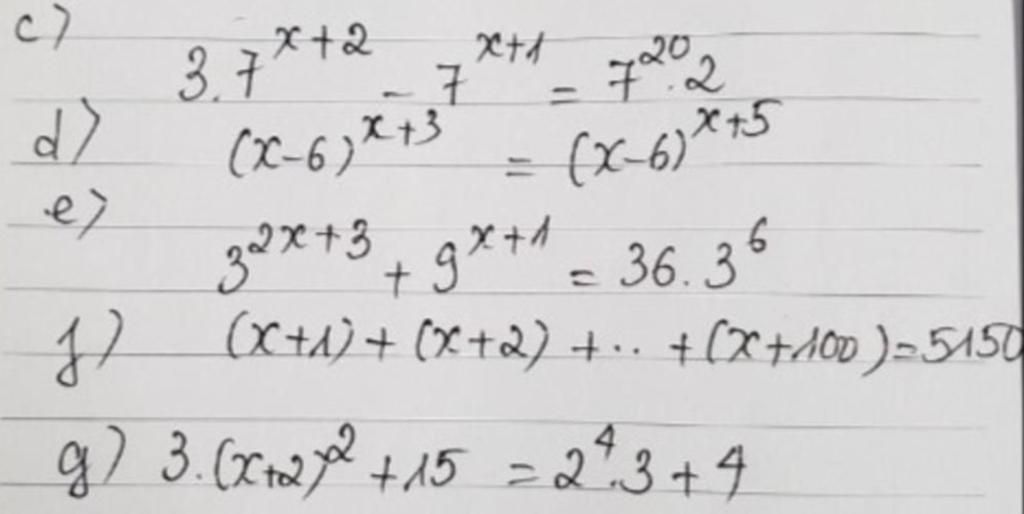 c) 3.7^{x+2} - 7^{x+1} = 7^{20}.2
d) (x-6)^{x+3} = (x-6)^{x+5}
e) 3^{2x+3} + 9^{x+1} = 36.3^6
f) (x+1) + (x+2) + .. + (x+100) = 5150
g) 3.(x+2)^2 + 15 = 2^4.3 + 4